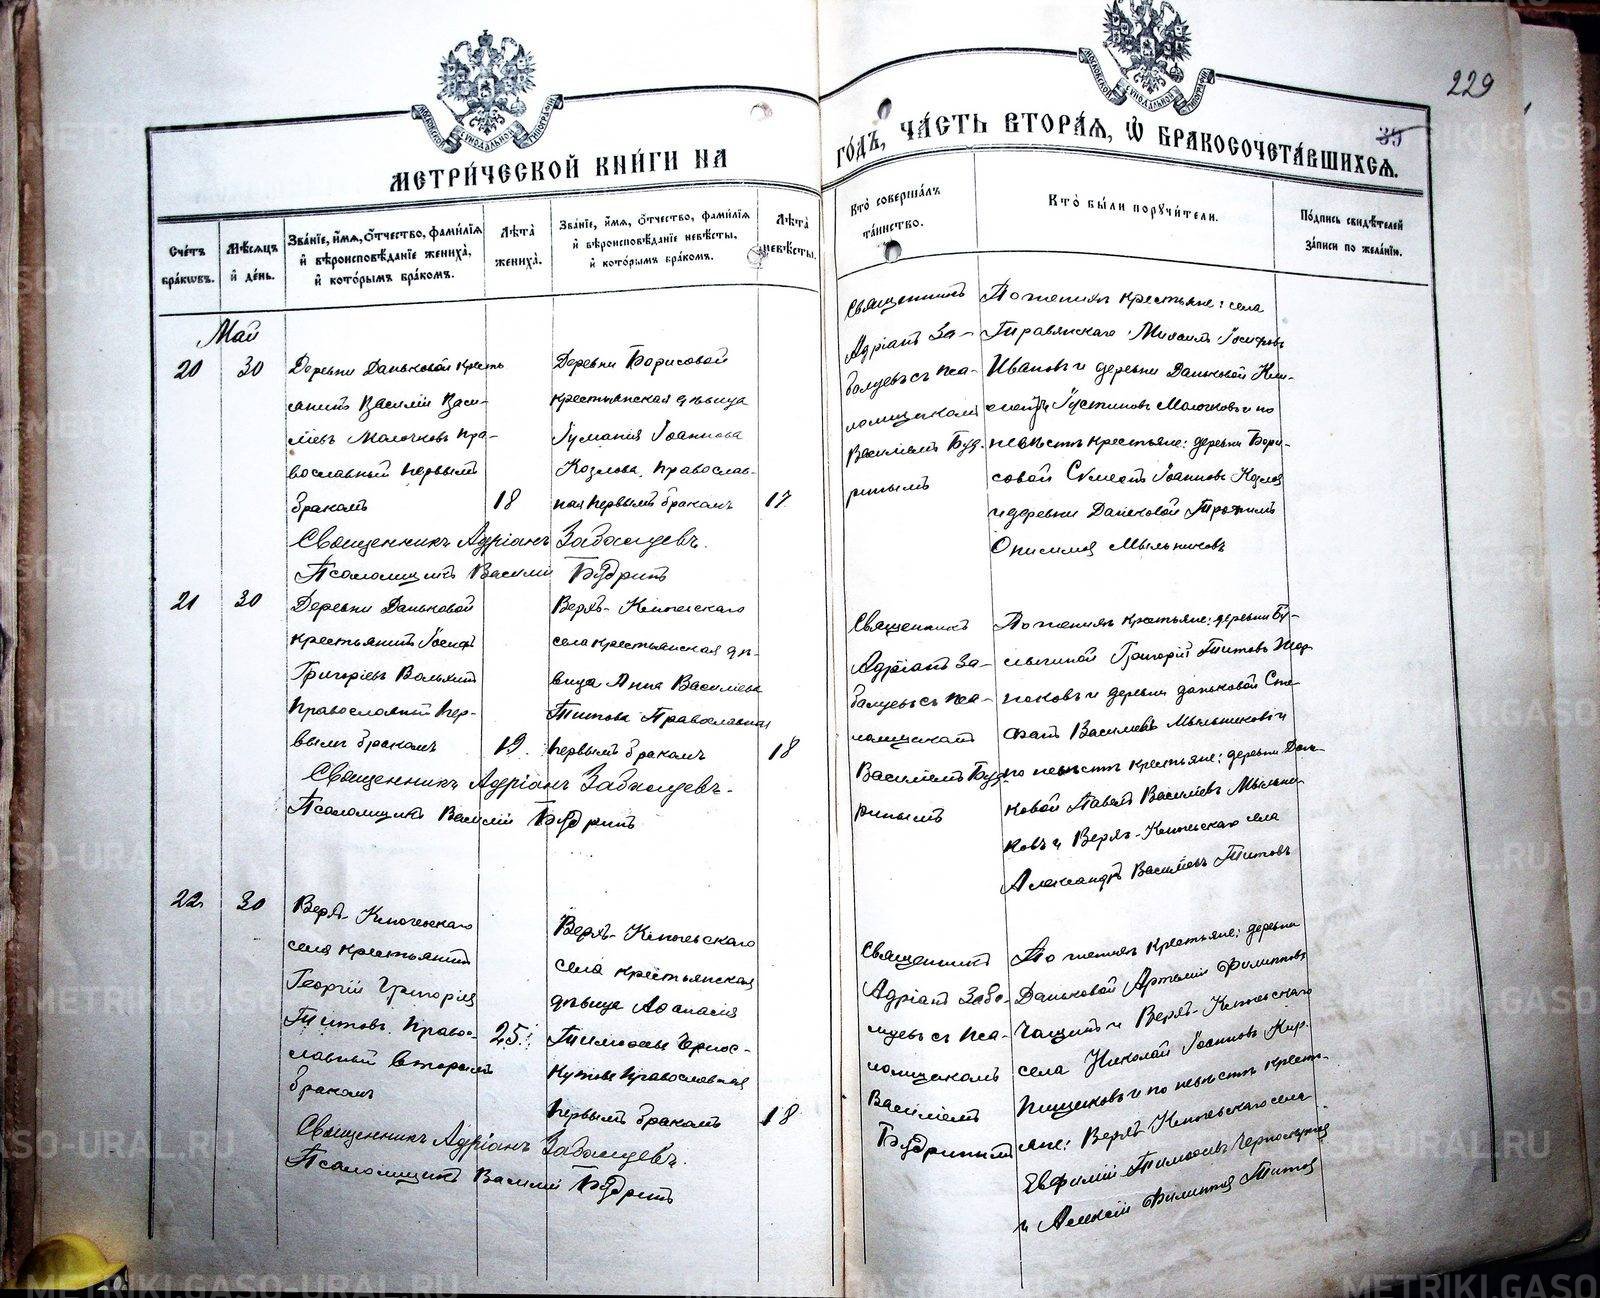 229
35
МЕТРИ́ЧЕСКОЙ КНИ́ГИ НА
ГО́ДЪ, ЧА́СТЬ ВТОРА́Я, Ѡ БРАКОСОЧЕТА́ВШИХСЯ.
Сче́тъ бра́кѡвъ.
Мѣ́сяцъ и де́нь.
Зва́нїе, и́мя, ѻ́тчество, фами́лїя и вѣроисповѣ́данїе жениха̀, и кото́рымъ бра́комъ.
Лѣ́та жениха̀.
Зва́нїе, и́мя, ѻ́тчество, фами́лїя и вѣроисповѣ́данїе невѣ́сты, и кото́рымъ бра́комъ.
Лѣ́та невѣ́сты.
Кто̀ соверша́лъ та́инство.
Кто̀ бы́ли порꙋчи́тели.
По́дпись свидѣ́телей за́писи по жела́нїю.
Май
20 30
Деревни Даньковой кресть
янинъ Василій Васи-
льевъ Молочковъ пра-
вославный первымъ
бракомъ 18
Деревни Борисовой
крестьянская дѣвица
Іоаннова
Козлова, православ-
ная первымъ бракомъ 17
Священникъ
Адріанъ За-
балуевъ съ пса-
ломщикомъ
Василіемъ Буд-
ринымъ
По женихѣ крестьяне: села
Травянскаго Михаилъ Іосифовъ
Ивановъ и деревни Даньковой Кли-
ментъ Іустиновъ Молочковъ и по
невѣстѣ крестьяне: деревни Бори-
совой Іоанновъ Козловъ
и деревни Даньковой Трофимъ
Онисимовъ Мыльниковъ
Священникъ Адріанъ Забалуевъ.
Псаломщикъ Василій Будринъ
21 30
Деревни Даньковой
крестьянинъ Іосифъ
Григорьевъ
Православный пер-
вымъ бракомъ 19.
Верхъ-Ключевскаго
села крестьянская дѣ-
вица Анна Васильева
Титова Православная
первымъ бракомъ 18
Священникъ
Адріанъ За-
балуевъ съ пса-
ломщикомъ
Василіемъ Буд-
ринымъ
По женихѣ крестьяне: деревни
Григорій Титовъ
и деревни Даньковой Сте-
фанъ Васильевъ Мыльниковъ и
по невѣстѣ крестьяне: деревни Дань-
ковой Павелъ Васильевъ Мыльни-
ковъ и Верхъ-Ключевскаго села
Александръ Васильевъ Титовъ
Священникъ Адріанъ Забалуевъ.
Псаломщикъ Василій Будринъ
22 30
Верхъ-Ключевскаго
села крестьянинъ
Георгій Григорьевъ
Титовъ, Право-
славный вторымъ
бракомъ 25.
Верхъ-Ключевскаго
села крестьянская
дѣвица Афанасія
Тимофеева Чернос-
кутова Православная
первымъ бракомъ 18
Священникъ
Адріанъ Заба-
луевъ съ пса-
ломщикомъ
Василіемъ
Будринымъ
По женихѣ крестьяне: деревни
Даньковой Артемій Филипповъ
и Верхъ-Ключевскаго
села Николай Іоанновъ Кир-
пищиковъ и по невѣстѣ кресть-
яне: Верхъ-Ключевскаго села
Евфимій Тимофеевъ Черноскутовъ
и Алексій Филипповъ Титовъ
Священникъ Адріанъ Забалуевъ.
Псаломщикъ Василій Будринъ
METRIKI.GASO-URAL.RU